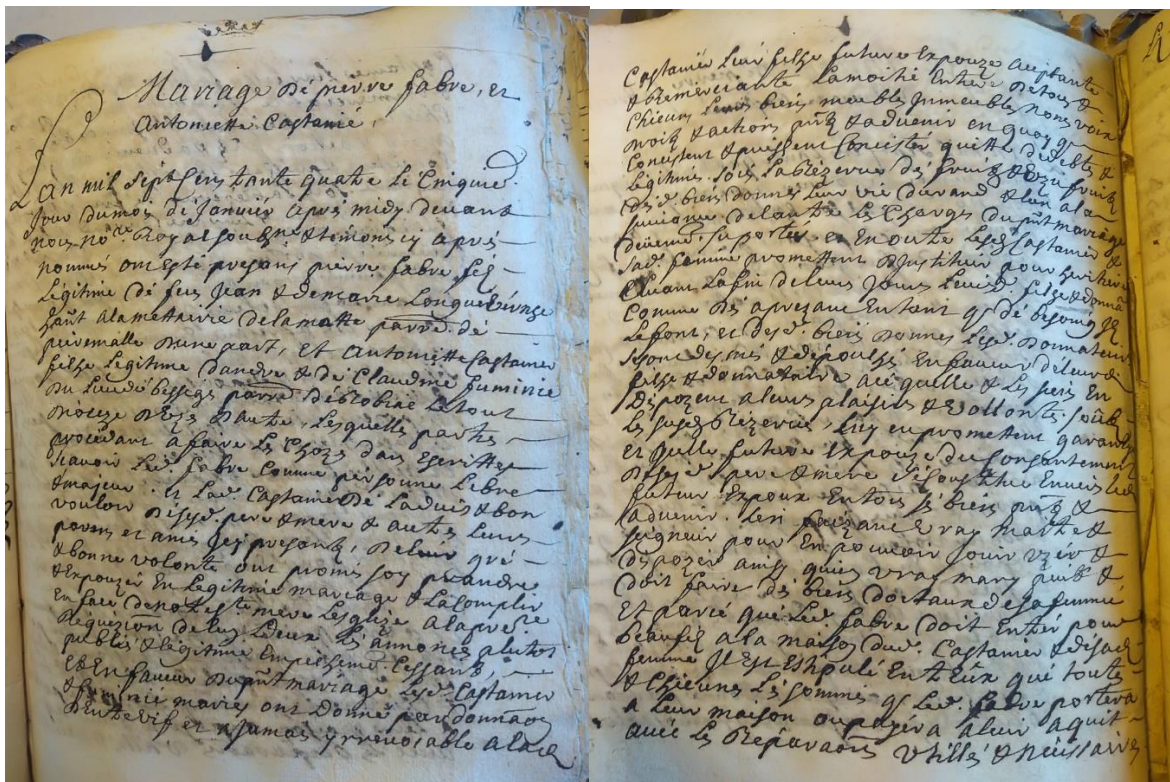 Mariage de pierre fabre, et
Antoinette Castanié,
Lan mil sept Cens trante quatre Le Cinquie.
Jour du mois de Janvier après midy devant
nous no.re Royal soubz.ne & temoins cy après
nommés ont esté presans pierre fabre fils
Légitime de feu Jean & de marie Longue
hant a la mettairie de lamatte parre. de
peiremalle dune part, et Antoinette Castanier
fille Légitime dandre & de Claudine fuminie
du Lieu de besseges parre. de Robiac Le tout
Dioceze Duzès Dautre, Lesquelles parties
procédant a faire Les Choses dans Escrittes
scavoir Led. fabre Comme personne Libre
& majeur. et Lad. Castanier De Ladvis & bon
vouloir Disd. pere & mere & autres Leurs
parens et amis jcy presants, De leur gré
& bonne volonté ont promis soy prandre
& Expouzer En Legitime mariage & Lacomplir
En face de notre s.te mere Lesglize a la pre.re
Requizion de luy Deux Les annonces plutot
publiés & légitime Empechement Cessant
Et En faveur du p.nt mariage Lesd. Castanier
& fuminie mariés ont Donné par donnaon
Dentrevifs et a Jamais yrrevocable a lad.
Castanier Leur fille future Expouze aceptante
& Remerciante La moitié Entiere De tous &
Chicuns Leurs biens meubles Jmmeubles noms voix
droitz & actions p.ntz & advenir en quoy q.
Concistent & puissent Concister quitte de debtes &
Légitime. sous La Rézerve des fruitz & uzufruitz
desd. biens donnés Leur vie durand & lon a la
suivie de lautre Les Charges du p.nt mariage
suporter, et En outre Lesd. Castanier &
sad. femme promettent Djnstituer pour heritiere
avant La fin de leurs Jours Leurd. fille & donnan.
Comme Dès apresant En tant q. de bezoing Jl
Le font, et desd. biens Donnés Lesd. Donnateurs
se sont desmis & depouillés En faveur de leurd.
fille & donnataire
a leurs plaisirs & vollontés soubz
Les susd. Rézerves Luy en promettent garantie
Et quelle future Expouze du Consantement
Desd. pere & mere sest Constitué Envers led.
futur Expoux En tous ses biens p.ntz &
advenir. Len faizant vray maitre &
seigneur pour En pouvoir Jouir uzer &
dispozer ainsy quun vray mary peut &
doit faire des biens doctaux de sa femme
Et parce que Led. fabre doit Entrer pour
beaufils a la maison dud. Castanier & de sad.
femme Jl est Esthpulé Entre Eux que toutes
& Chicunes Les sommes q. Led. fabre portera
a Leur maison ou payera a leur aquit
avec Les Réparaons Uthilles & Necessaires